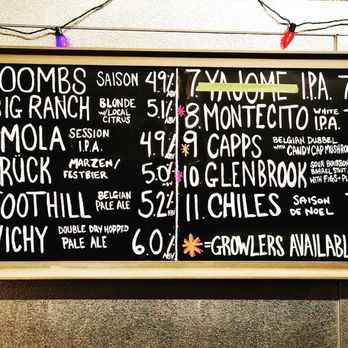 OOMBS SAISON 4.9% ABV
BIG RANCH BLONDE W/LOCAL CITRUS 5.1% ABV
MOLA SESSION I.P.A. 4.9% ABV
RÜCK MARZEN/ FESTBIER 5.0% ABV
OOTHILL BELGIAN PALE ALE 5.2% ABV
VICHY DOUBLE DRY HOPPED PALE ALE 6.0% ABV
7. YAJOME I.P.A. 7
*8 MONTECITO WHITE I.P.A.
*9 CAPPS BELGIAN DUBBEL WITH CANDY CAP MUSHROO
*10. GLENBROOK SOUR BOURBON BARREL STOUT WITH FIGS + PL
11. CHILES SAISON DE NOEL
*=GROWLERS AVAILABL